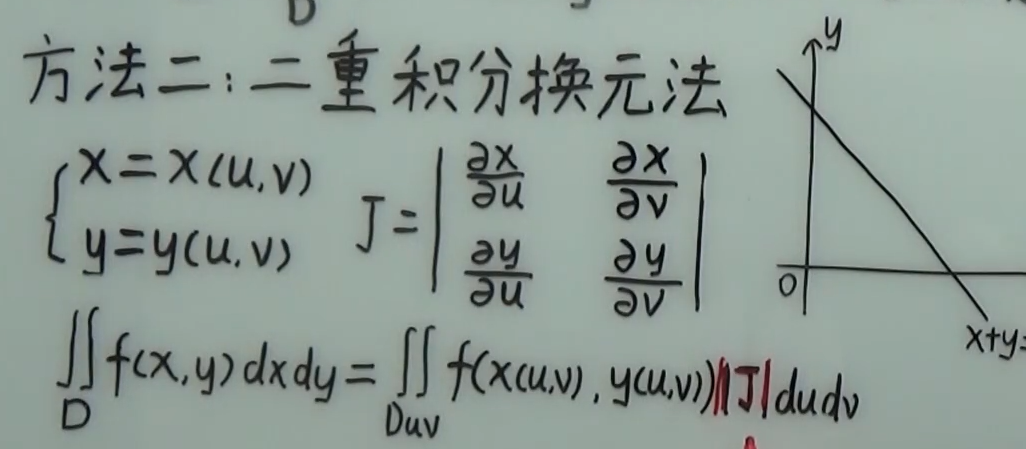 D
方法二:二重积分换元法
{ x=x(u,v)
y=y(u,v)
J=| ∂x/∂u ∂x/∂v |
| ∂y/∂u ∂y/∂v |
∬_D f(x,y)dxdy=∬_Duv f(x(u,v),y(u,v))|J|dudv
y
O
x+y=